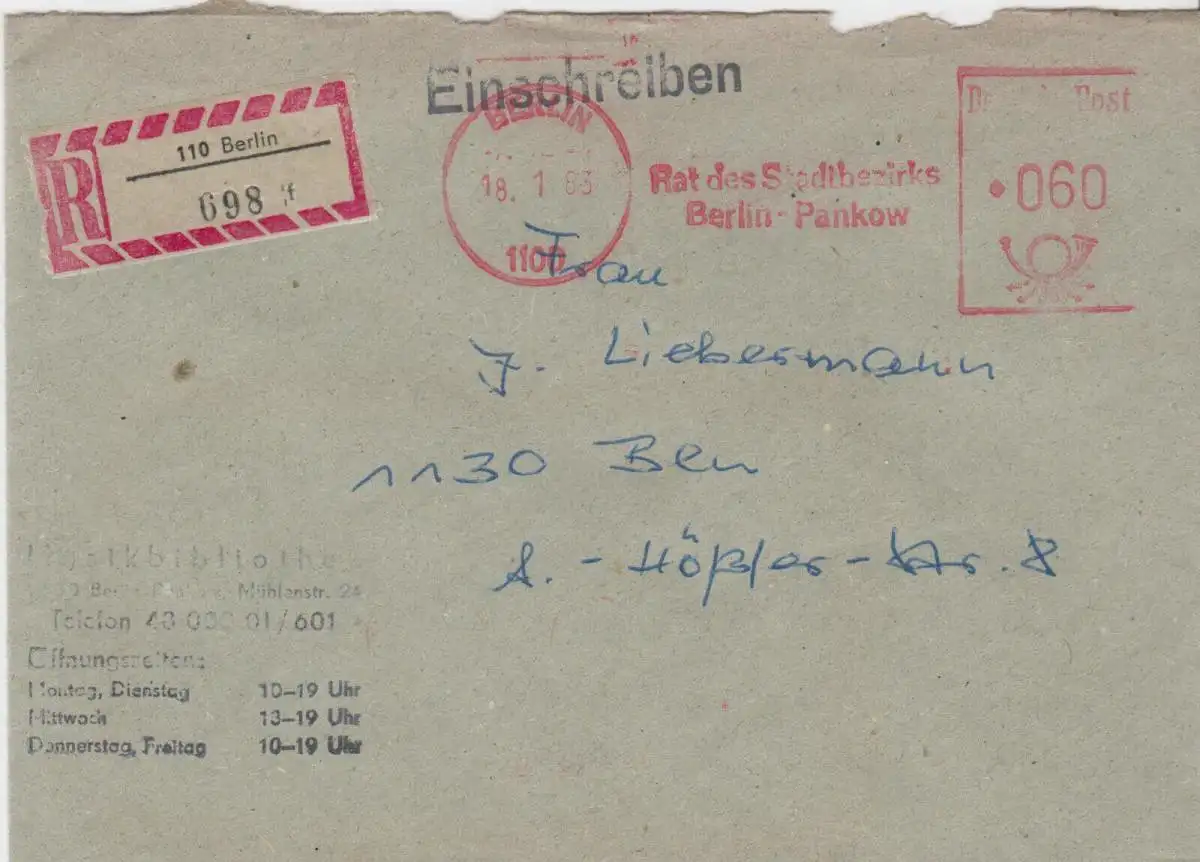 Einschreiben
R
110 Berlin
698
BERLIN
18. 1 83
1100
Rat des Stadtbezirks
Berlin-Pankow
Post
060
Frau
J. Liebermann
1130 Bln
A.-Hößler-Str. 8
Mühlenstr. 24
Telefon 48 000 01/601
Öffnungszeiten:
Montag, Dienstag 10–19 Uhr
Mittwoch 13–19 Uhr
Donnerstag, Freitag 10–19 Uhr